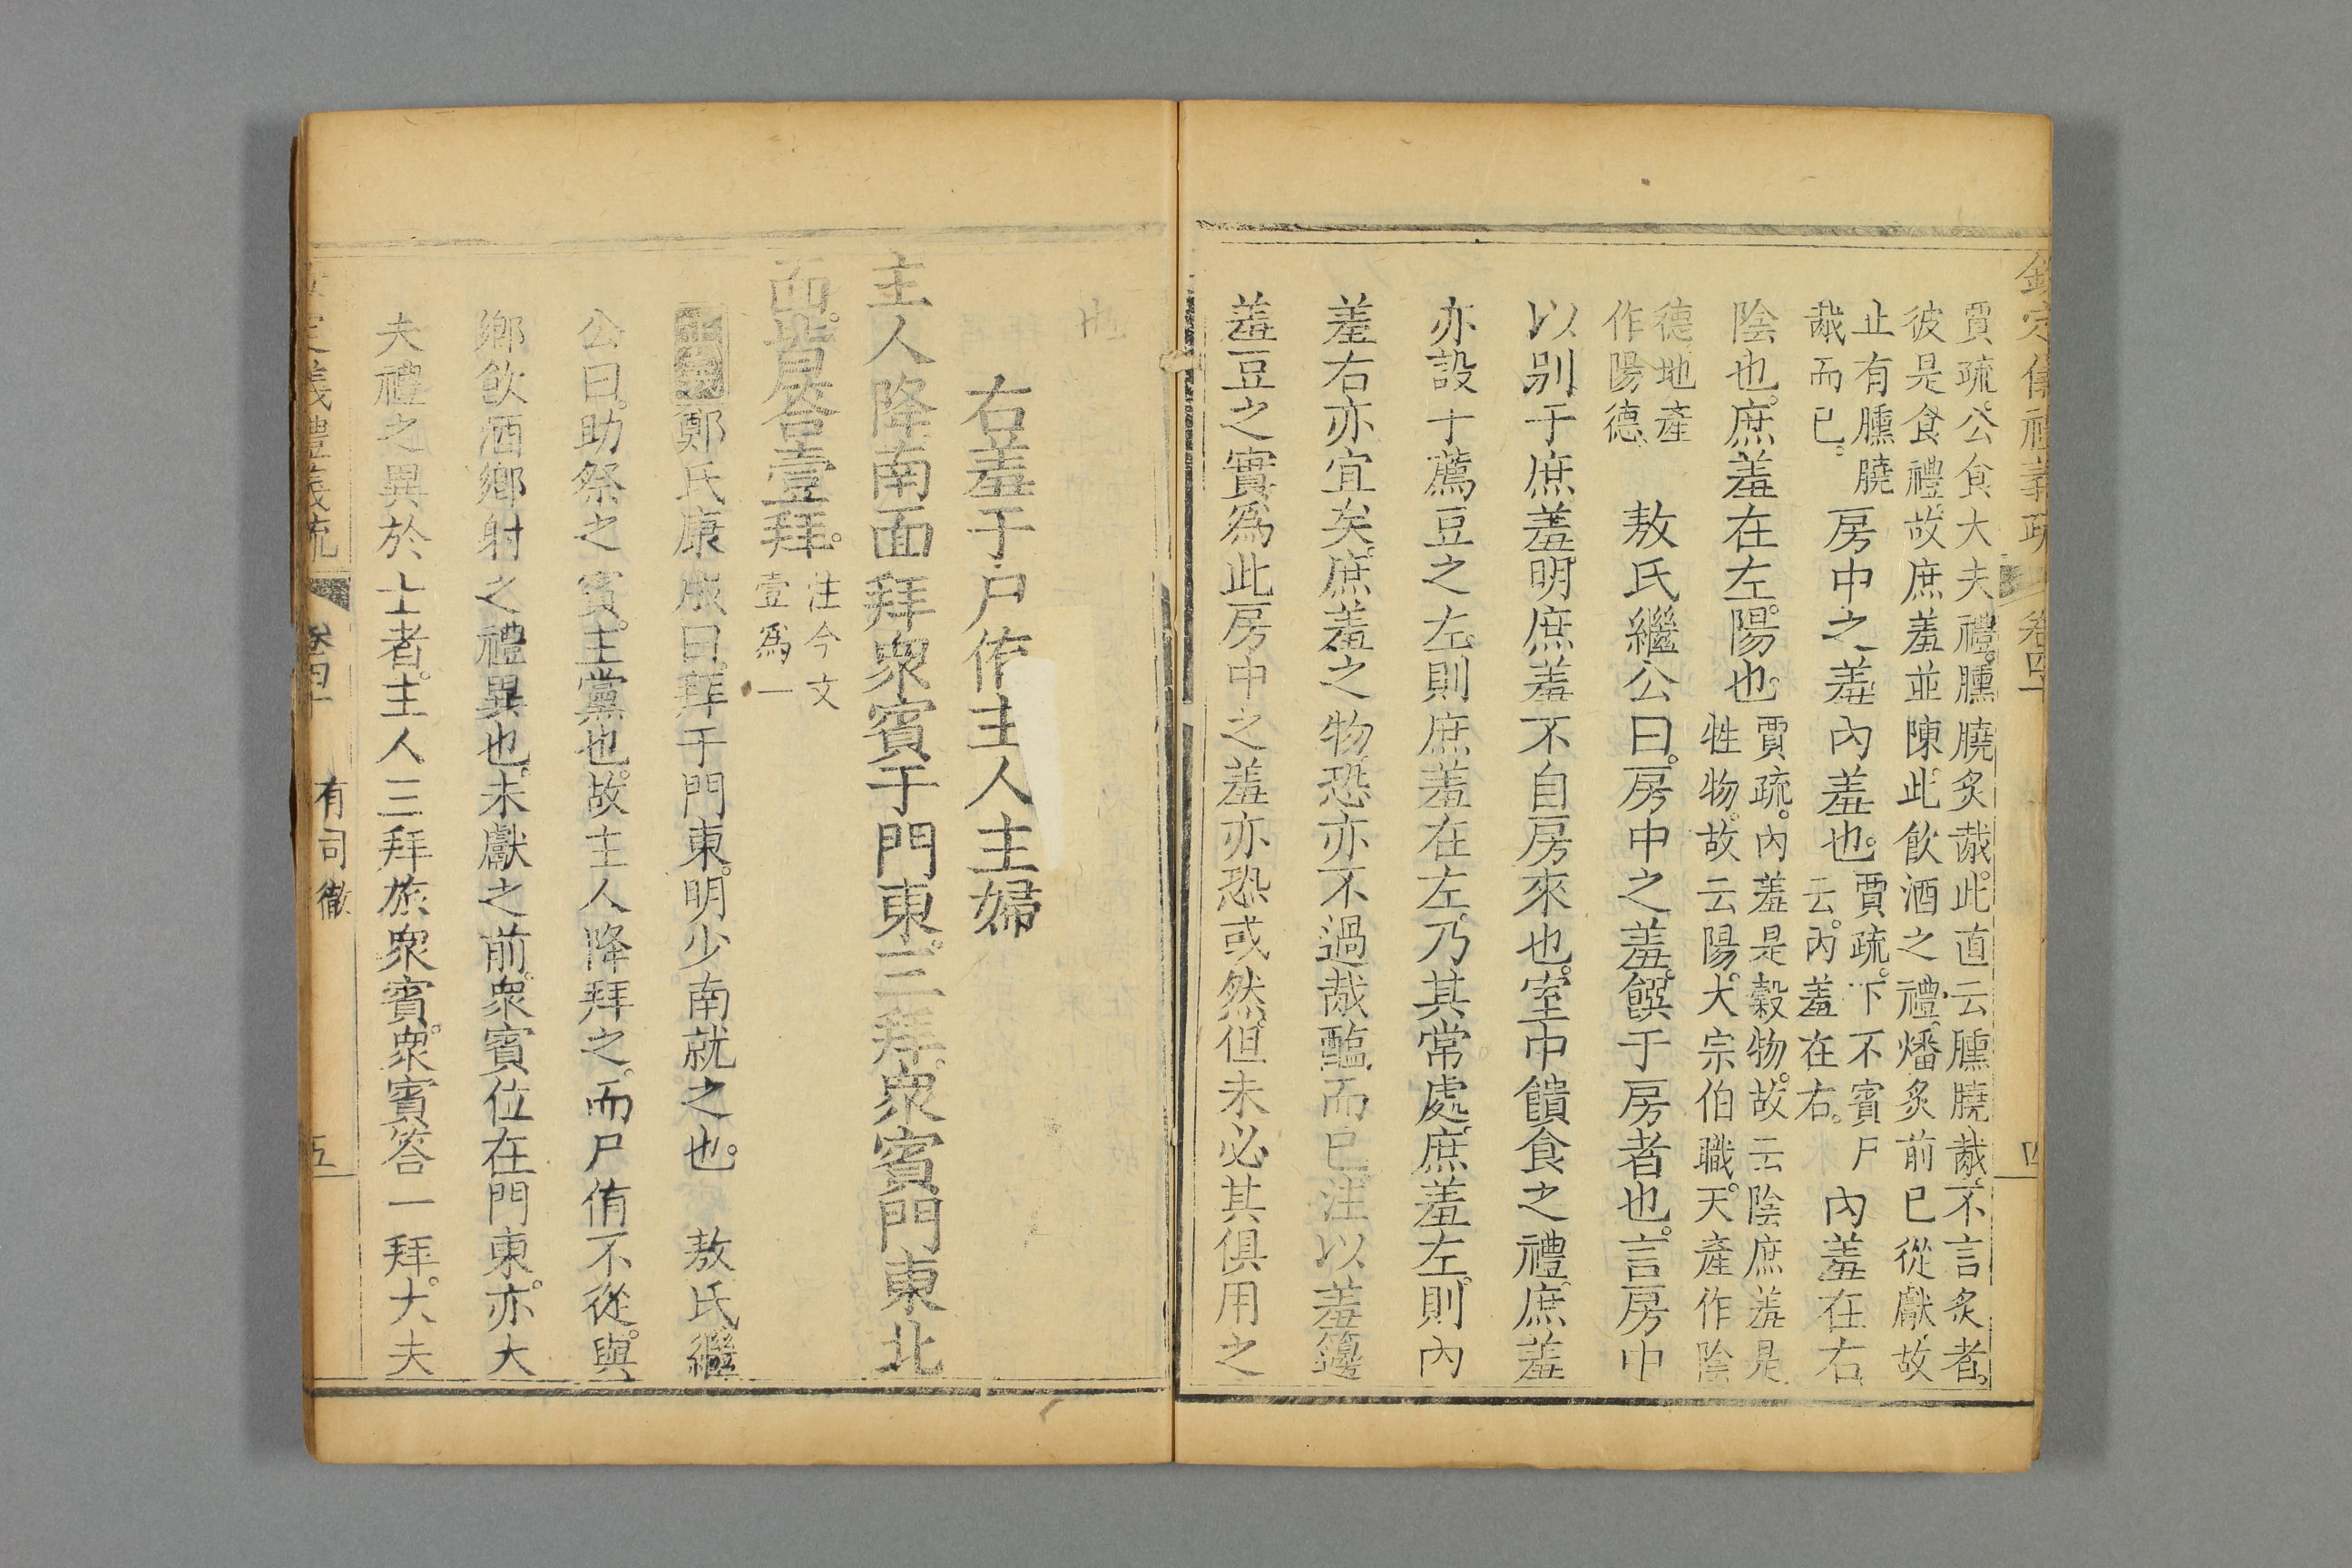 欽定儀禮義疏 卷四十 四
賈疏。公食大夫禮。臐膮炙胾。此直云臐膮胾。不言炙者。
彼是食禮。故庶羞並陳。此飲酒之禮。燔炙前已從獻。故
止有臐膮
胾而已。
房中之羞。內羞也。
賈疏。下不賓尸
云。內羞在右。
內羞在右
陰也。庶羞在左。陽也。
賈疏。內羞是穀物。故云陰。庶羞是
牲物。故云陽。大宗伯職。天產作陰
德。地產
作陽德。
敖氏繼公曰。房中之羞。饌于房者也。言房中
以別于庶羞。明庶羞不自房來也。室中饋食之禮。庶羞
亦設于薦豆之左。則庶羞在左。乃其常處。庶羞左。則內
羞右亦宜矣。庶羞之物。恐亦不過胾醢而已。注以羞籩
羞豆之實。為此房中之羞。亦恐或然。但未必其俱用之
也
右羞于尸侑主人主婦
主人降。南面拜眾賓于門東。三拜。眾賓門東北
面。皆答壹拜。
注今文
壹為一
鄭氏康成曰。拜于門東。明少南就之也。 敖氏繼
公曰。助祭之賓。主黨也。故主人降拜之。而尸侑不從。與
鄉飲酒鄉射之禮異也。未獻之前。眾賓位在門東。亦大
夫禮之異於士者。主人三拜旅眾賓。眾賓答一拜。大夫
欽定儀禮義疏 卷四十 有司徹 五